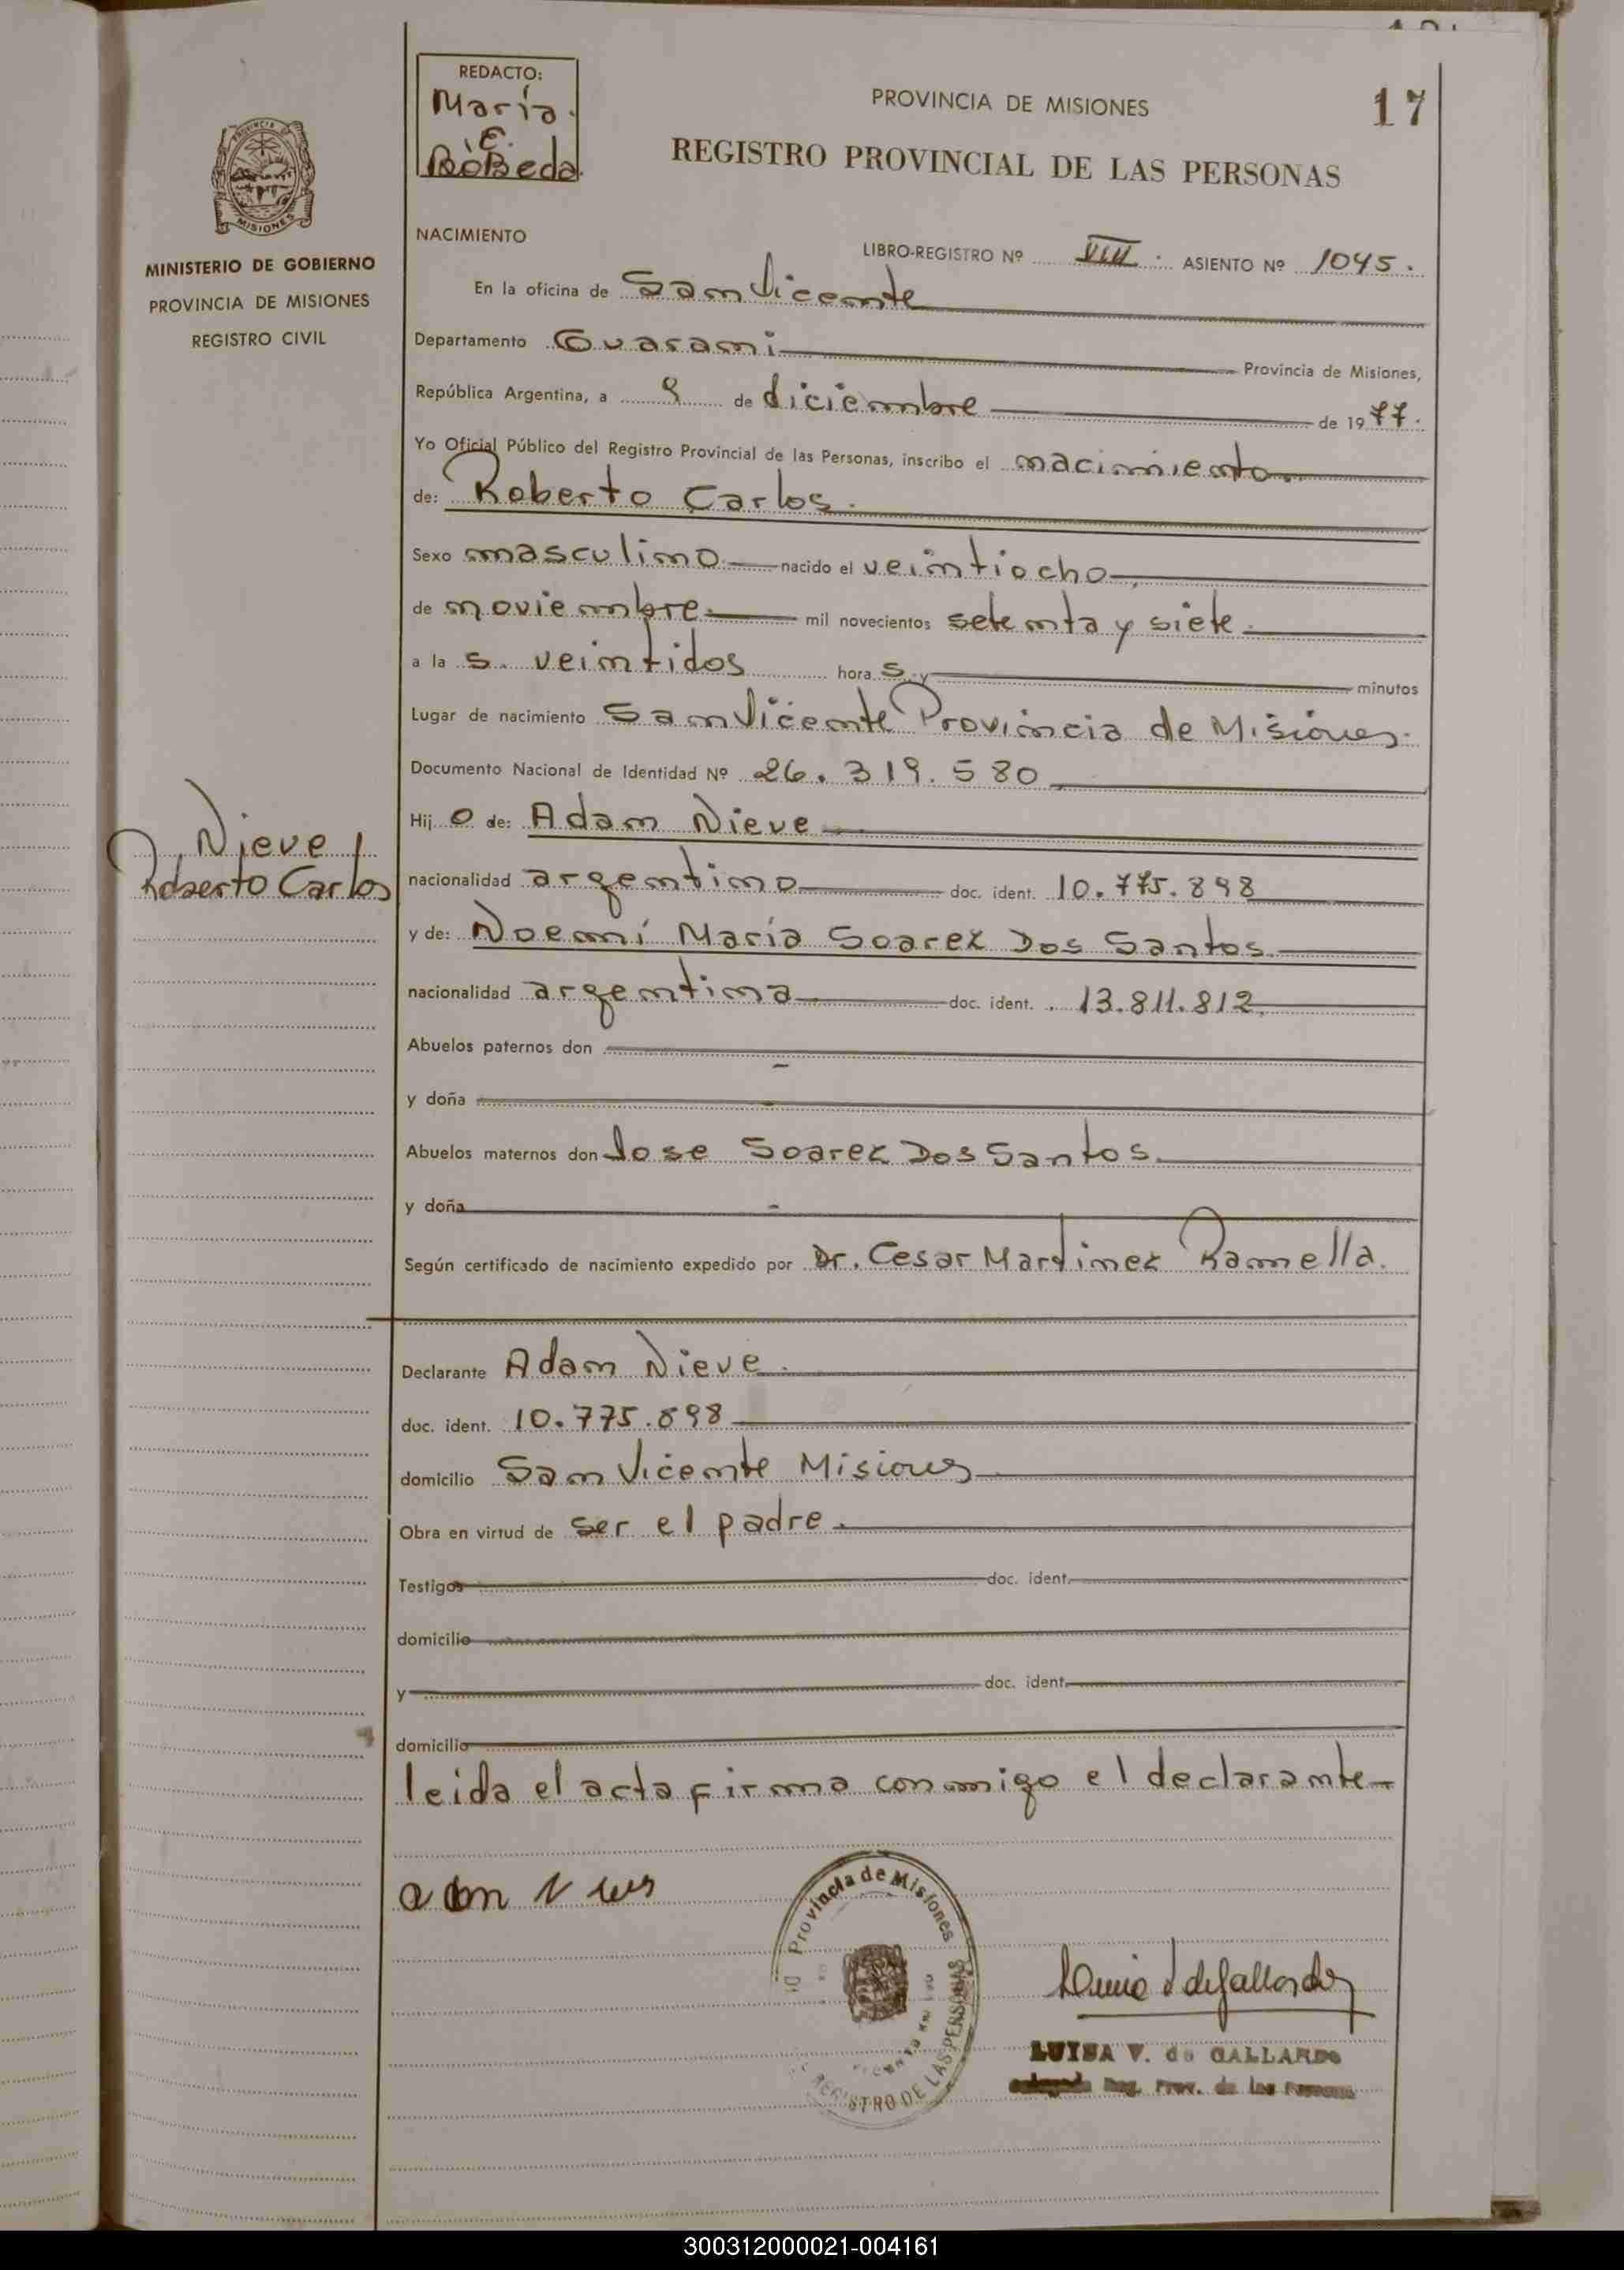 REDACTO:
Maria
E.
RoBeda
PROVINCIA DE MISIONES
17
REGISTRO PROVINCIAL DE LAS PERSONAS
PROVINCIA DE
MISIONES
MINISTERIO DE GOBIERNO
PROVINCIA DE MISIONES
REGISTRO CIVIL
NACIMIENTO
LIBRO-REGISTRO Nº VIII. ASIENTO Nº 1045.
En la oficina de San Vicente
Departamento Guarani Provincia de Misiones,
República Argentina, a 9 de diciembre de 1977.
Yo Oficial Público del Registro Provincial de las Personas, inscribo el nacimiento
de: Roberto Carlos.
Sexo masculino nacido el veintiocho
de noviembre mil novecientos setenta y siete
a la s. veintidos hora s. y minutos
Lugar de nacimiento San Vicente Provincia de Misiones.
Documento Nacional de Identidad Nº 26.319.580
Hij o de: Adam Nieve
Nieve
Roberto Carlos
nacionalidad argentino doc. ident. 10.775.898
y de: Noemi Maria Soarez Dos Santos
nacionalidad argentina doc. ident. 13.811.812
Abuelos paternos don
y doña
Abuelos maternos don Jose Soarez Dos Santos
y doña
Según certificado de nacimiento expedido por Dr. Cesar Martinez Ramella.
Declarante Adam Nieve
doc. ident. 10.775.898
domicilio San Vicente Misiones
Obra en virtud de ser el padre.
Testigos doc. ident.
domicilio
y doc. ident.
domicilio
leida el acta firma conmigo el declarante
Provincia de Misiones
REGISTRO DE LAS PERSONAS
LUISA V. de GALLARDO
Reg. Prov. de las Personas
300312000021-004161